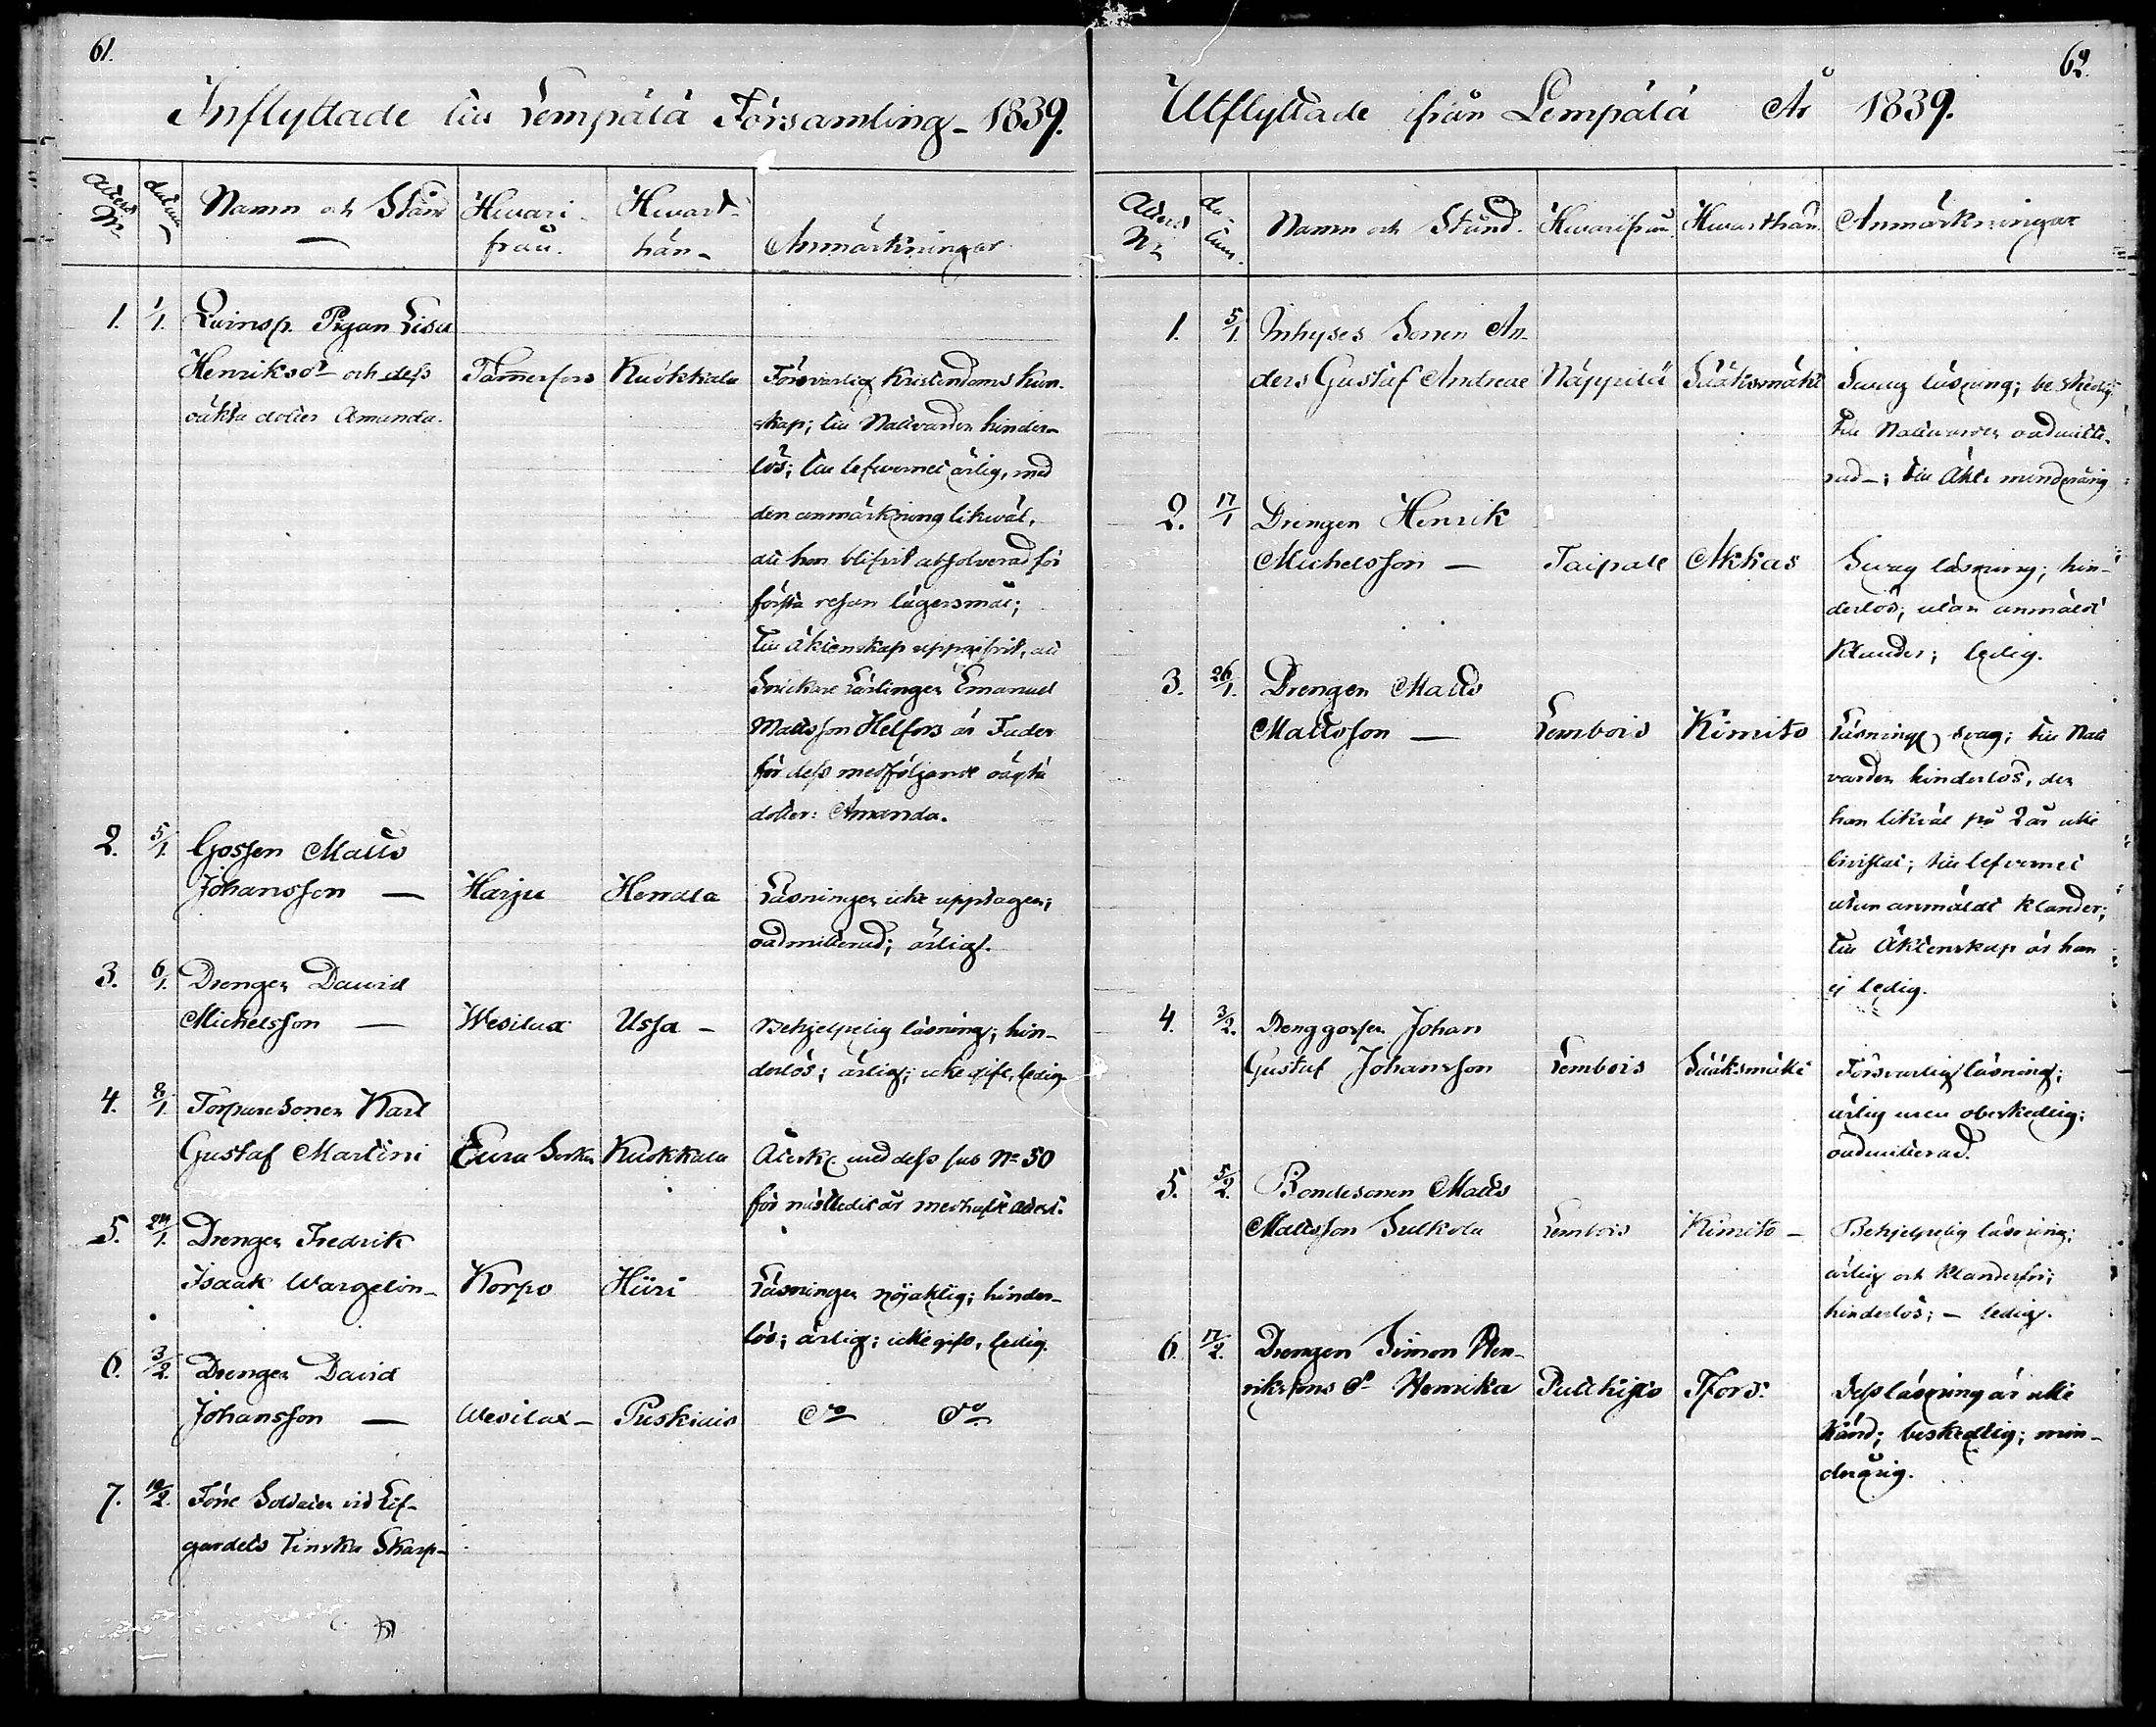 61.
Inflyttade till Lempälä Församling - 1839.
Attest N:r
datum
Namn och Stånd
Hwari-
från.
Hwart-
hän -
Anmärkningar
1. 1/1. Qwinsp. Pigan Lisa
Henriksd:r och dess Tammerfors Kuokkala Försvarlig Kristendoms kun-
oäkta dotter Amanda. skap; till Nattvarden hinder-
lös; till lefvernet ärlig, med
den anmärkning likwäl,
att hon blifvit absolverad för
första resan lägersmål;
till äktenskap uppgifvit, att
Snickare Lärlingen Emanuel
Mattsson Helfors är Fader
för dess medföljande oägta
dotter: Amanda.
2. 5/1. Gossen Matts
Johansson — Harju Herrala Läsningen icke upptagen;
oadmitterad; ärlig.
3. 6/1. Drengen David
Michelsson — Wesilax Ussa - Behjelpelig läsning; hin-
derlös; ärlig; icke gift, ledig
4. 8/1. Torparesonen Karl
Gustaf Martini Eura Kuokkala Återk. med dess sub N:o 50
för nästledit år medhafde attest.
5. 24/1. Drengen Fredrik
Isaak Wargelin - Korpo Hiiri Läsningen nöjaktig; hinder-
lös; ärlig; icke gift, ledig.
6. 3/2. Drengen David
Johansson — Wesilax - Puskiais d:o d:o
7. 10/2. Förre Soldaten vid Lif-
gardets Finska Skarp-
62.
Utflyttade ifrån Lempälä År 1839.
Attest N:r
da-
tum.
Namn och Stånd.
Hwarifrån.
Hwarthän.
Anmärkningar
1. 5/1. Inhyses Sonen An-
ders Gustaf Andreae Näppilä Sääksmäki Swag läsning; beskedlig:
till Nattwarden oadmitte-
rad -; till Äkt: minderårig
2. 17/1 Drengen Henrik
Michelsson — Taipale Akkas Swag läsning; hin-
derlös; utan anmäldt
klander; ledig.
3. 26/1. Drengen Matts
Mattsson — Lembois Kimito Läsning svag; till Natt
varden hinderlös, den
han likväl på 2 år icke
bivistat; till lefvernet
utan anmäldt klander;
till Äktenskap är han
ej ledig.
4. 3/2. Drenggossen Johan
Gustaf Johansson Lembois Sääksmäki Försvarlig läsning;
ärlig men obeskedlig:
oadmitterad.
5. 5/2. Bondesonen Matts
Mattsson Sulkola Lembois Kimito - Behjelpelig läsning;
ärlig och klanderfri;
hinderlös; - ledig.
6. 17/2. Drengen Simon Hen-
rikssons d:r Henrika Pulthisto Tfors. Dess läsning är icke
känd; beskedlig; min-
derårig.